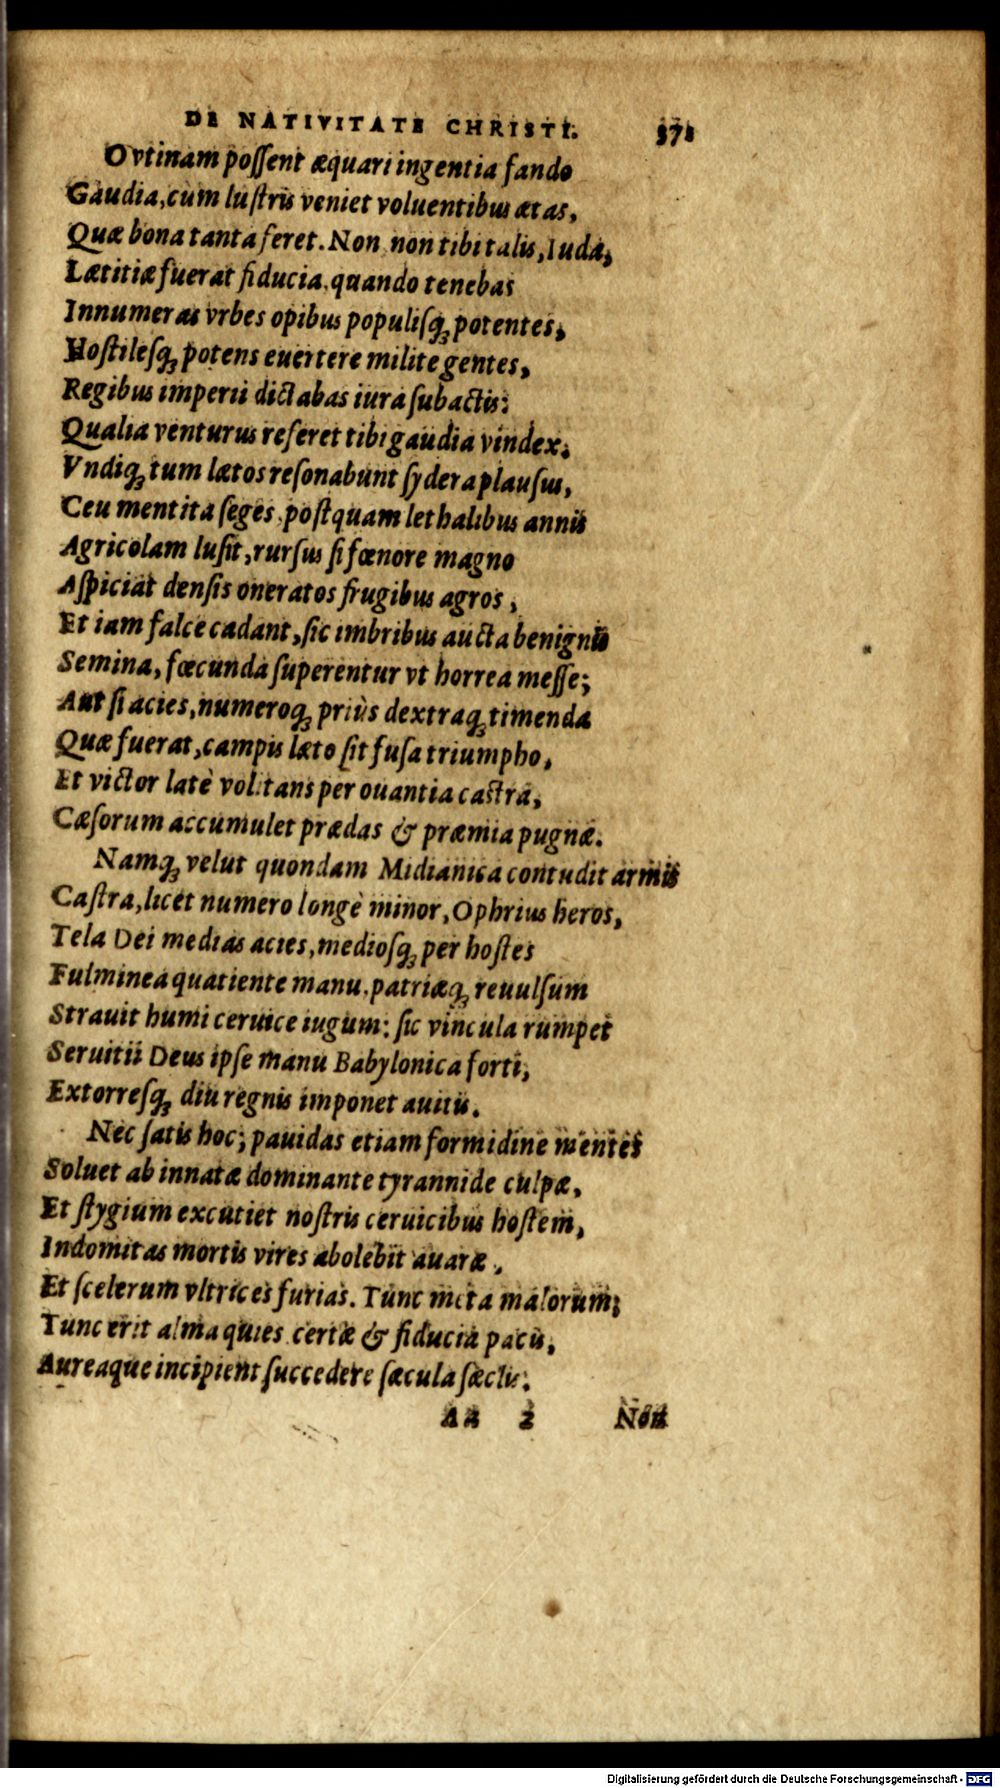 DE NATIVITATE CHRISTI. 371
O vtinam poſſent æquari ingentia fando
Gaudia, cum luſtris veniet voluentibus ætas,
Quæ bona tanta feret. Non non tibi talis, Iuda,
Lætitiæ fuerat fiducia, quando tenebas
Innumeras vrbes opibus populiſq; potentes,
Hoſtileſq; potens euertere milite gentes,
Regibus imperii dictabas iura ſubactis:
Qualia venturus referet tibi gaudia vindex.
Vndiq; tum lætos reſonabunt ſydera plauſus,
Ceu mentita ſeges, poſtquam lethalibus annis
Agricolam luſit, rurſus ſi fœnore magno
Aſpiciat denſis oneratos frugibus agros,
Et iam falce cadant, ſic imbribus aucta benignis
Semina, fœcunda ſuperentur vt horrea meſſe;
Aut ſi acies, numeroq; priùs dextraq; timenda
Quæ fuerat, campis læto ſit fuſa triumpho,
Et victor latè volitans per ouantia caſtra,
Cæſorum accumulet prædas & præmia pugnæ.
Namq; velut quondam Midianica contudit armis
Caſtra, licet numero longè minor, Ophrius heros,
Tela Dei medias acies, medioſq; per hoſtes
Fulminea quatiente manu, patriæq; reuulſum
Strauit humi ceruice iugum: ſic vincula rumpet
Seruitii Deus ipſe manu Babylonica forti,
Extorreſq; diu regnis imponet auitis.
Nec ſatis hoc; pauidas etiam formidine mentes
Soluet ab innatæ dominante tyrannide culpæ,
Et ſtygium excutiet noſtris ceruicibus hoſtem,
Indomitas mortis vires abolebit auaræ,
Et ſcelerum vltrices furias. Tunc meta malorum;
Tunc erit alma quies certæ & fiducia pacis,
Aureaque incipient ſuccedere ſæcula ſæclis.
Aa 2 Non
Digitalisierung gefördert durch die Deutsche Forschungsgemeinschaft - DFG